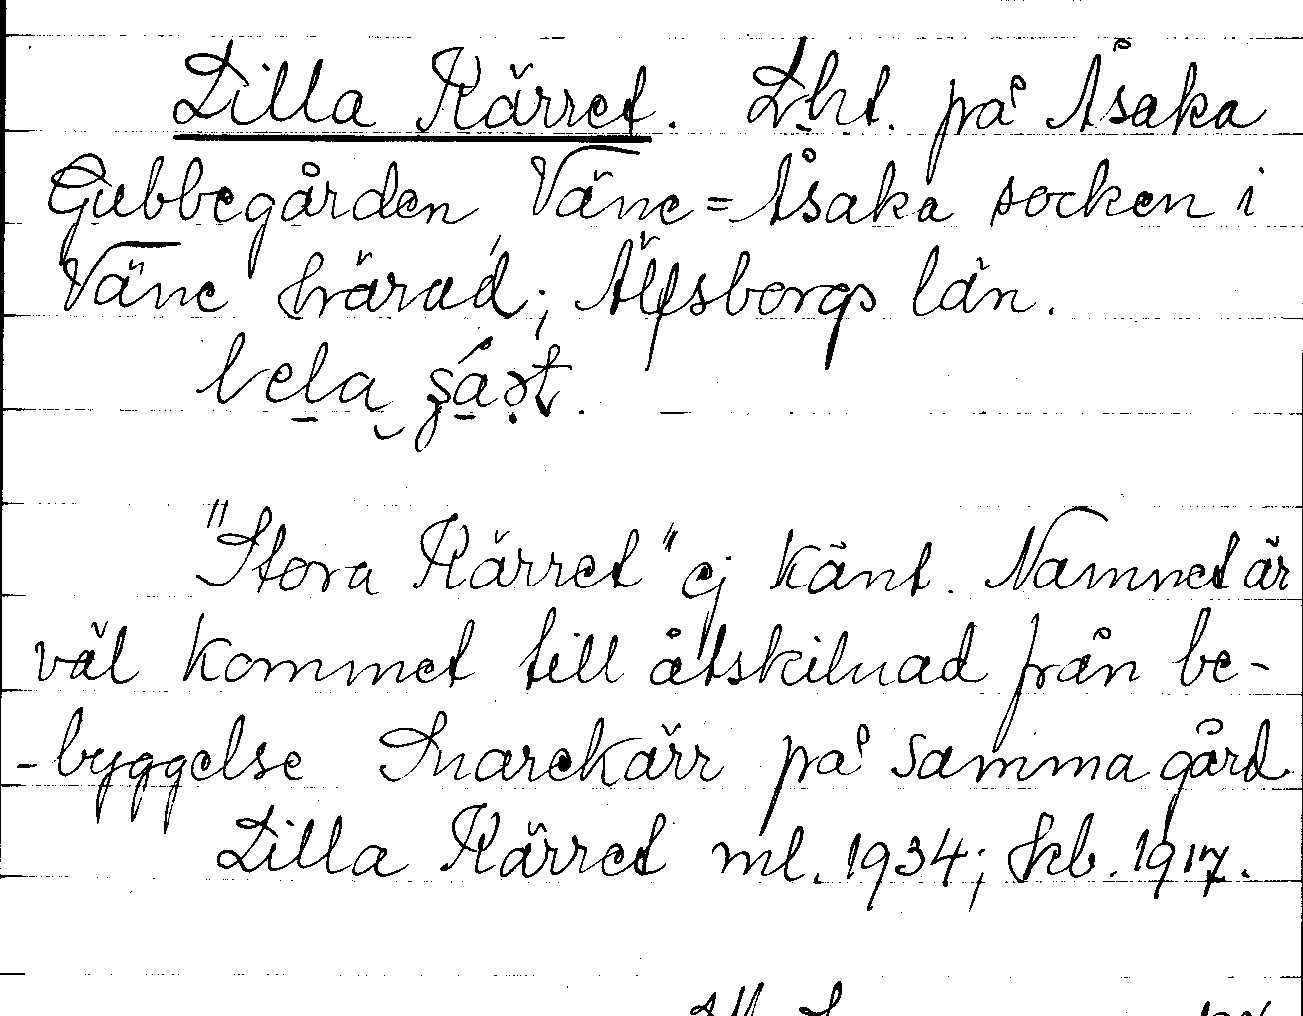 Lilla Kärret. Lht. på Åsaka
Gubbegården, Väne=Åsaka socken i
Väne härad; Älfsborgs län.
"Stora Kärret" ej känt. Namnet är
väl kommet till åtskilnad från be-
-byggelse Snarekärr på samma gård.
Lilla Kärret ml. 1934; Jkb. 1917.